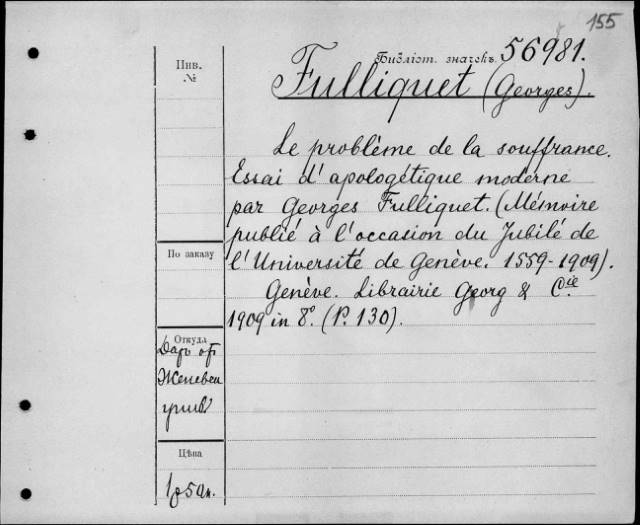 155
Библіот. значекъ 56981.
Инв. №
Fulliquet (Georges).
Le problème de la souffrance.
Essai d'apologétique moderne
par Georges Fulliquet. (Mémoire
publié à l'occasion du Jubilé de
l'Université de Genève. 1559-1909).
Genève. Librairie Georg & Cie.
1909 in 8°. (P. 130).
По заказу
Откуда
Даръ от
Женевск
унив
Цѣна
1р50к.